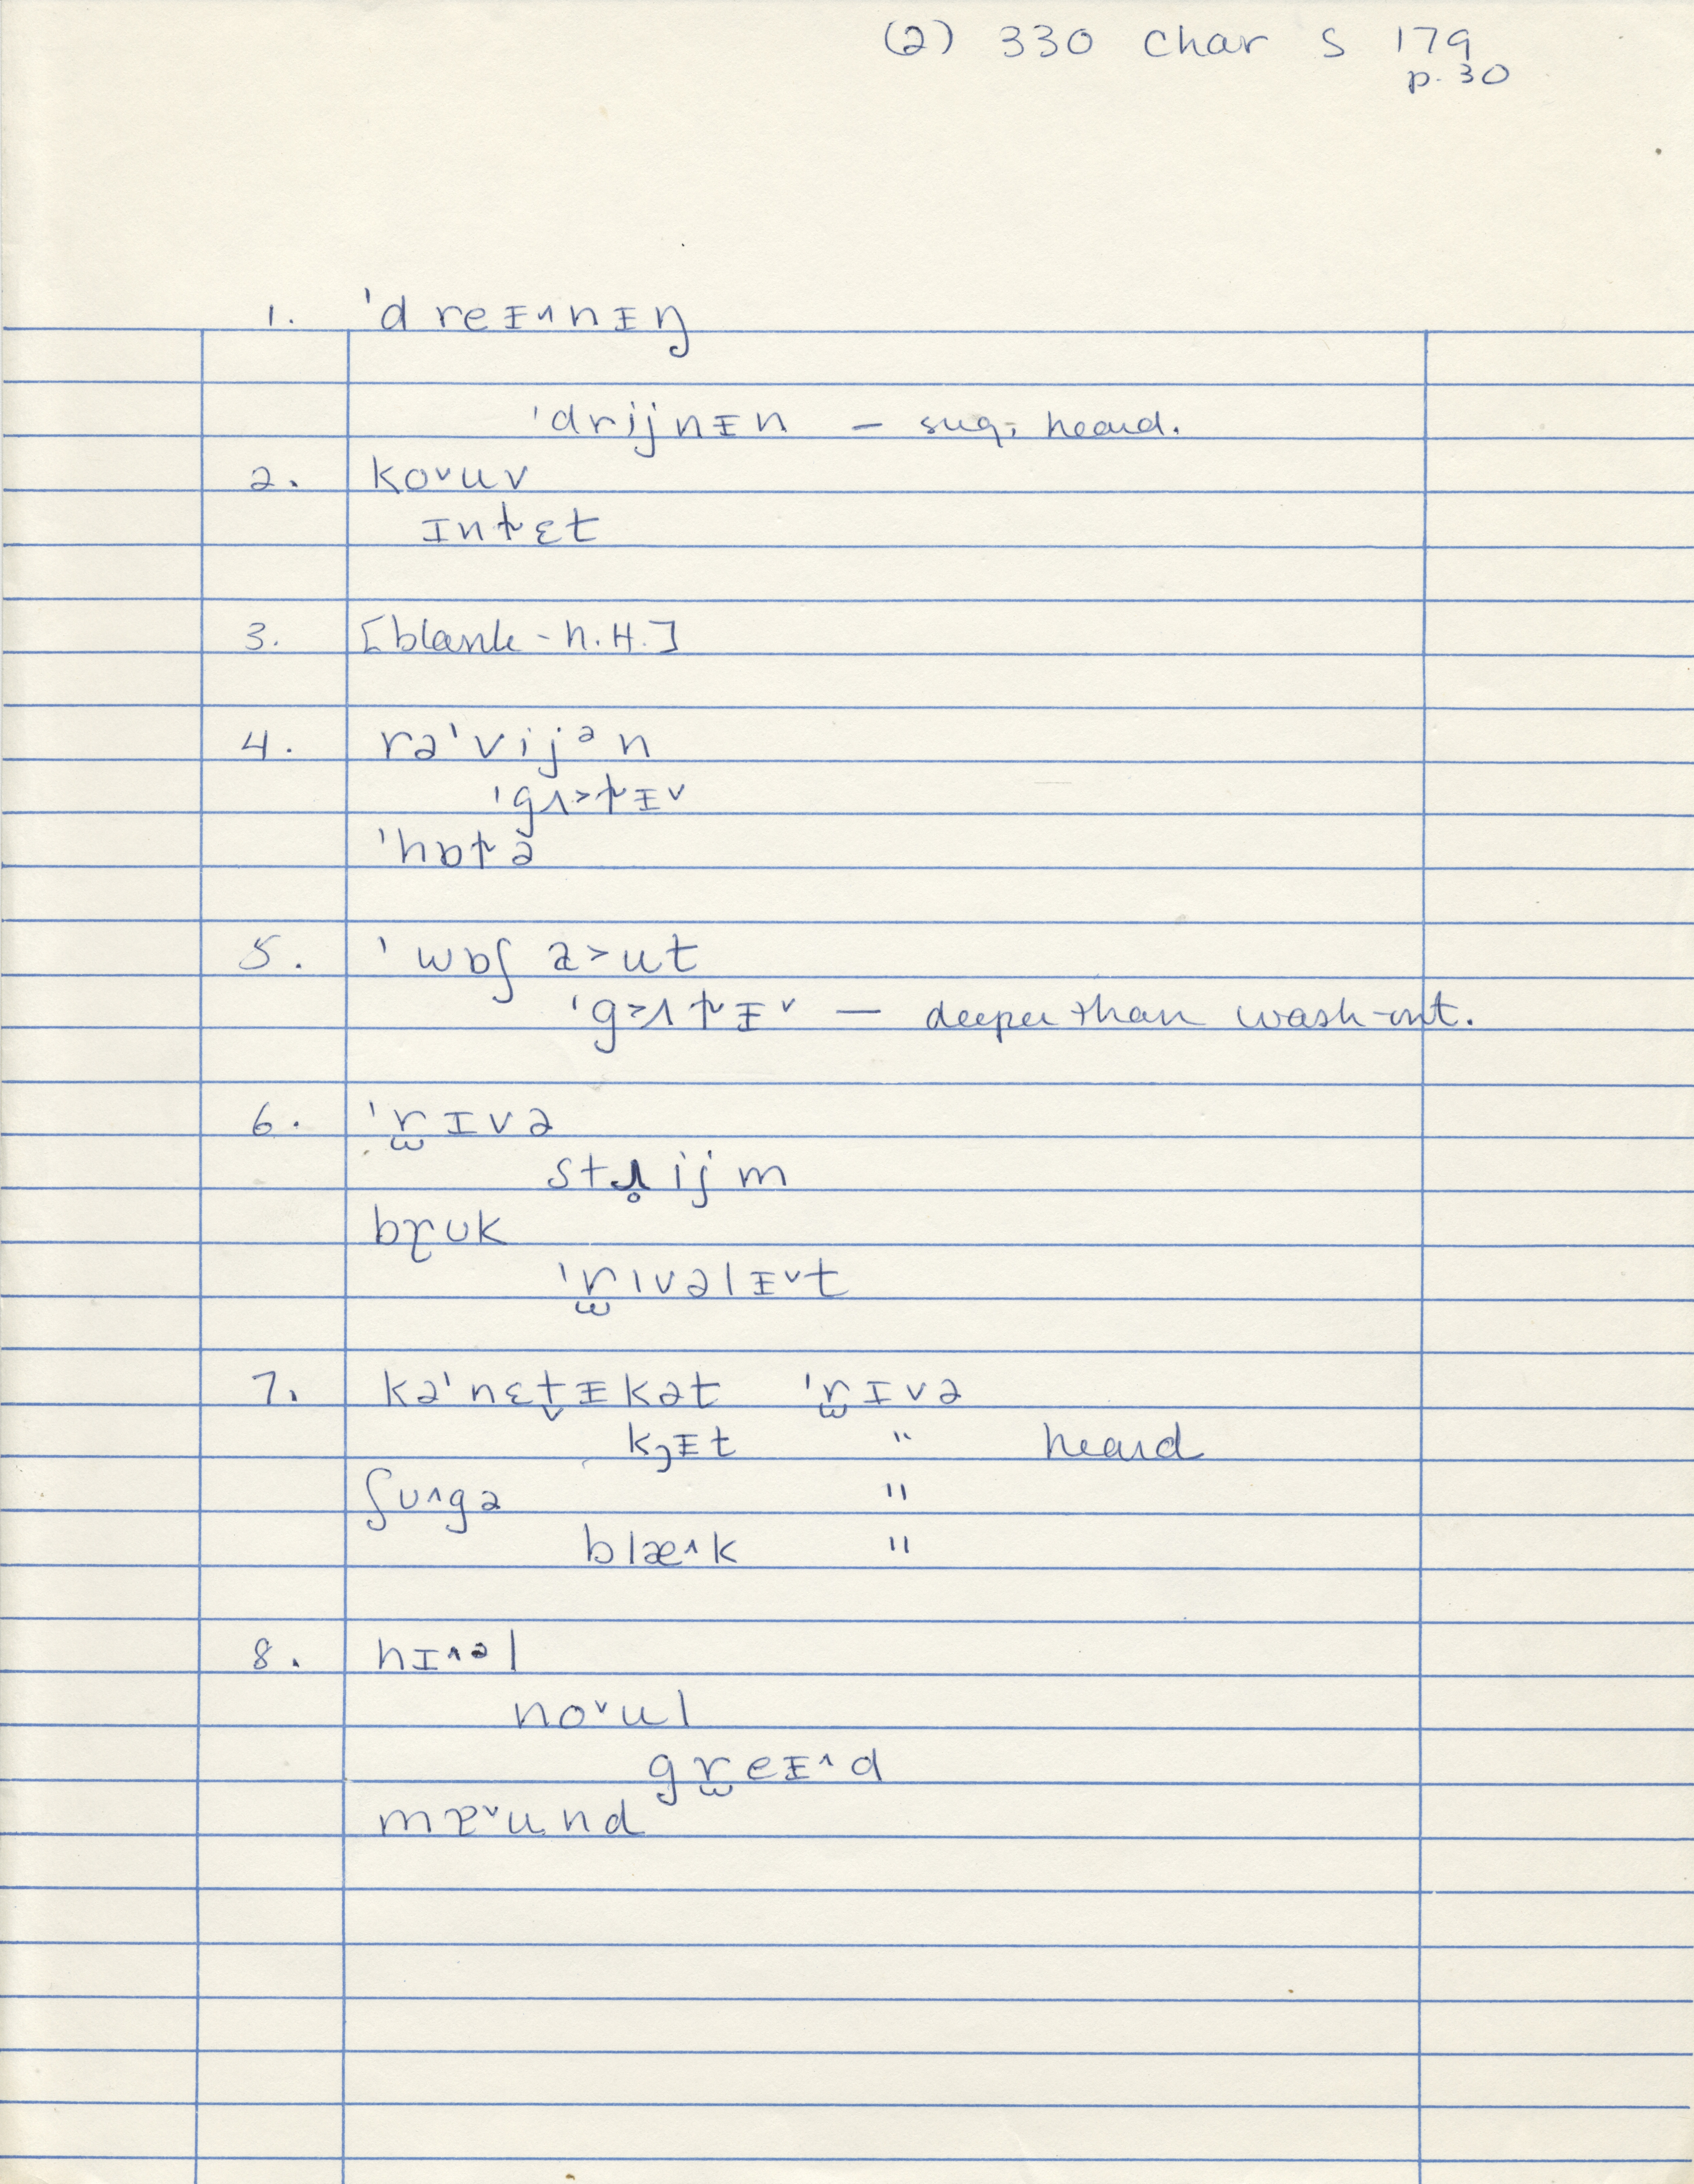 (2) 330 char S 179
p. 30
1. ˈdreᵻ˄nᵻŋ
ˈdrijnᵻn – sug; heard.
2. ko˅uv
ɪntɛt
3. [blank - N.H.]
4. rəˈvijᵊn
ˈgʌ>tᵻ˅
ˈhɒtə
5. ˈwɒʃ a>ut
ˈg>ʌtᵻ˅ — deeper than wash-out.
6. ˈr̫ɪvə
stɹ̥ijm
brʊk
ˈr̫ɪvəlᵻ˅t
7. kəˈnɛt̬ᵻkət ˈr̫ɪvə
kᵻt " heard
ʃʊ˄gə "
blæ˄k "
8. hɪ˄ᵊl
no˅ul
gr̫eᵻ˄d
mɐ˅und